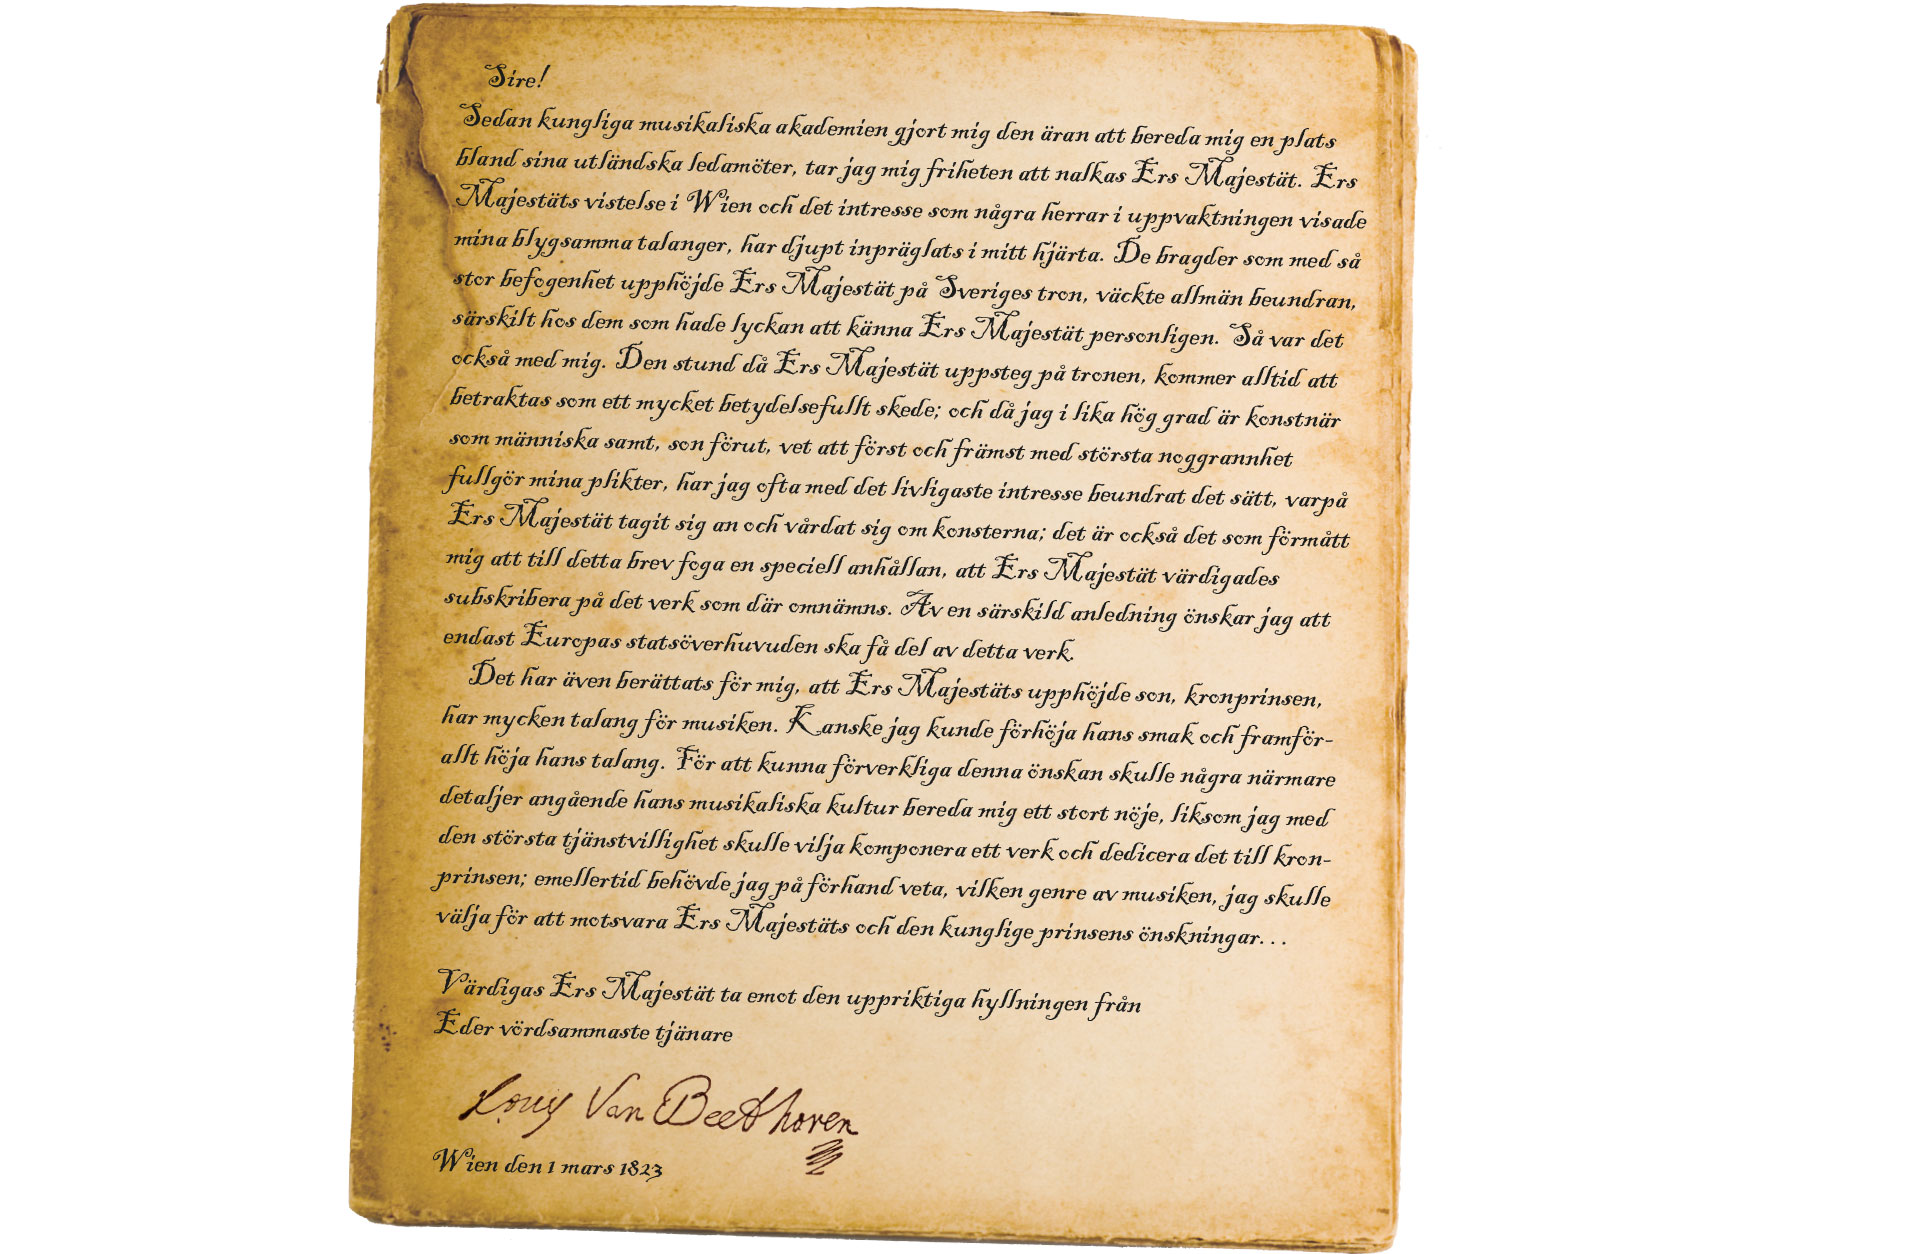 Sire!
Sedan kungliga musikaliska akademien gjort mig den äran att bereda mig en plats
bland sina utländska ledamöter, tar jag mig friheten att nalkas Ers Majestät. Ers
Majestäts vistelse i Wien och det intresse som några herrar i uppvaktningen visade
mina blygsamma talanger, har djupt inpräglats i mitt hjärta. De bragder som med så
stor befogenhet upphöjde Ers Majestät på Sveriges tron, väckte allmän beundran,
särskilt hos dem som hade lyckan att känna Ers Majestät personligen. Så var det
också med mig. Den stund då Ers Majestät uppsteg på tronen, kommer alltid att
betraktas som ett mycket betydelsefullt skede; och då jag i lika hög grad är konstnär
som människa samt, son förut, vet att först och främst med största noggrannhet
fullgör mina plikter, har jag ofta med det livligaste intresse beundrat det sätt, varpå
Ers Majestät tagit sig an och vårdat sig om konsterna; det är också det som förmått
mig att till detta brev foga en speciell anhållan, att Ers Majestät värdigades
subskribera på det verk som där omnämns. Av en särskild anledning önskar jag att
endast Europas statsöverhuvuden ska få del av detta verk.
Det har även berättats för mig, att Ers Majestäts upphöjde son, kronprinsen,
har mycken talang för musiken. Kanske jag kunde förhöja hans smak och framför-
allt höja hans talang. För att kunna förverkliga denna önskan skulle några närmare
detaljer angående hans musikaliska kultur bereda mig ett stort nöje, liksom jag med
den största tjänstvillighet skulle vilja komponera ett verk och dedicera det till kron-
prinsen; emellertid behövde jag på förhand veta, vilken genre av musiken, jag skulle
välja för att motsvara Ers Majestäts och den kunglige prinsens önskningar...
Värdigas Ers Majestät ta emot den uppriktiga hyllningen från
Eder vördsammaste tjänare
Louis Van Beethoven
Wien den 1 mars 1823